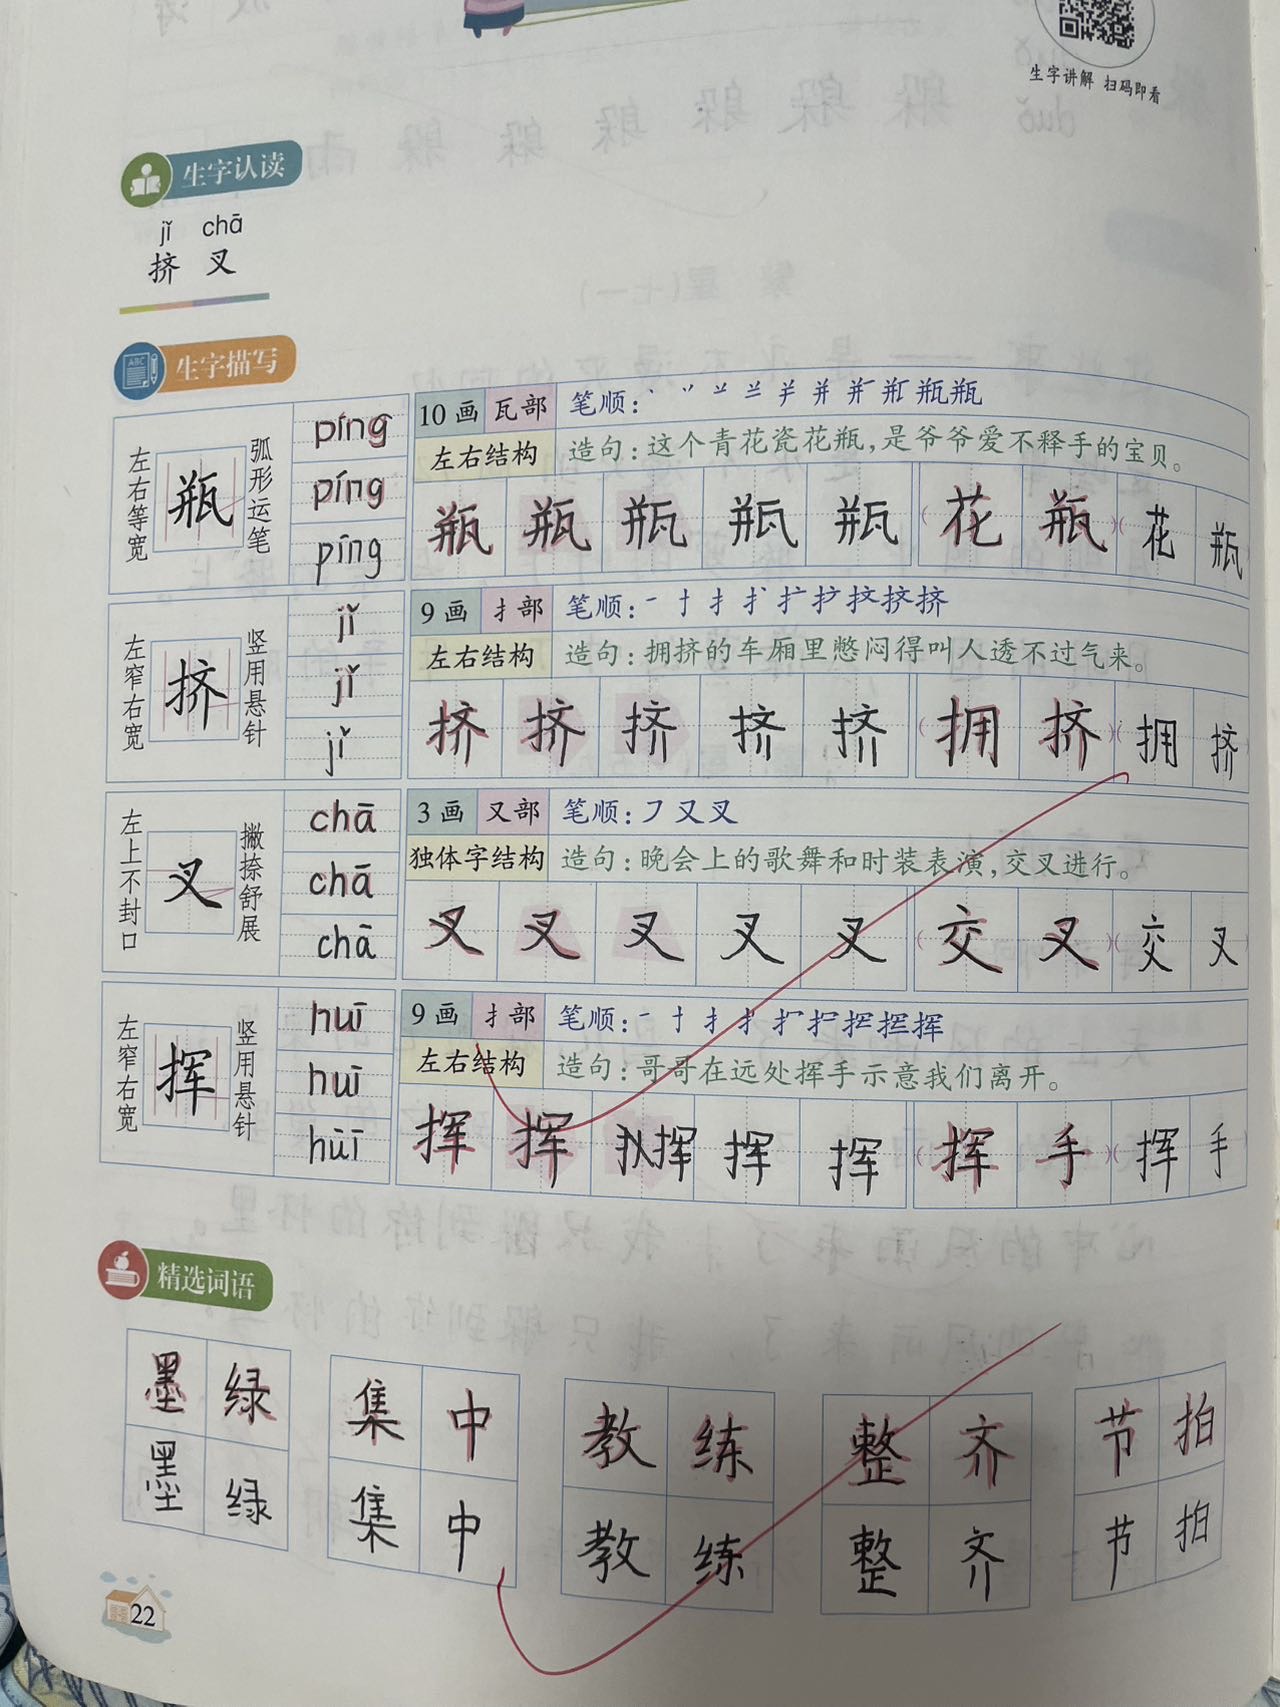 生字讲解 扫码即看
生字认读
jǐ chā
挤 叉
生字描写
左右等宽 瓶 弧形运笔
píng
píng
píng
10画 瓦部 笔顺：
左右结构 造句：这个青花瓷花瓶，是爷爷爱不释手的宝贝。
瓶 瓶 瓶 瓶 瓶 （花 瓶）（花 瓶
左窄右宽 挤 竖用悬针
jǐ
jǐ
jǐ
9画 扌部 笔顺：
左右结构 造句：拥挤的车厢里憋闷得叫人透不过气来。
挤 挤 挤 挤 挤 （拥 挤）（拥 挤
左上不封口 叉 撇捺舒展
chā
chā
chā
3画 又部 笔顺：フ又叉
独体字结构 造句：晚会上的歌舞和时装表演，交叉进行。
叉 叉 叉 叉 叉 （交 叉）（交 叉）
左窄右宽 挥 竖用悬针
huī
huī
huī
9画 扌部 笔顺：
左右结构 造句：哥哥在远处挥手示意我们离开。
挥 挥 挥 挥 挥 （挥 手）（挥 手
精选词语
墨绿 集中 教练 整齐 节拍
墨绿 集中 教练 整齐 节拍
22